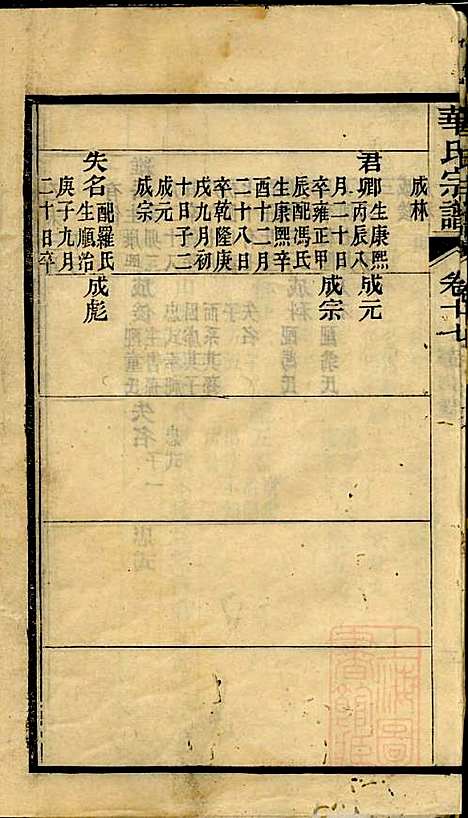 華氏宗譜
卷十七
成林
君卿生康熙
丙辰八
月二十日
卒雍正甲
辰配馮氏
生康熙辛
酉十二月
二十八日
卒乾隆庚
戌九月初
十日子二
成元
成宗
成元
成宗
失名配羅氏
生順治
庚子九月
二十日卒
成彪
上海圖書館